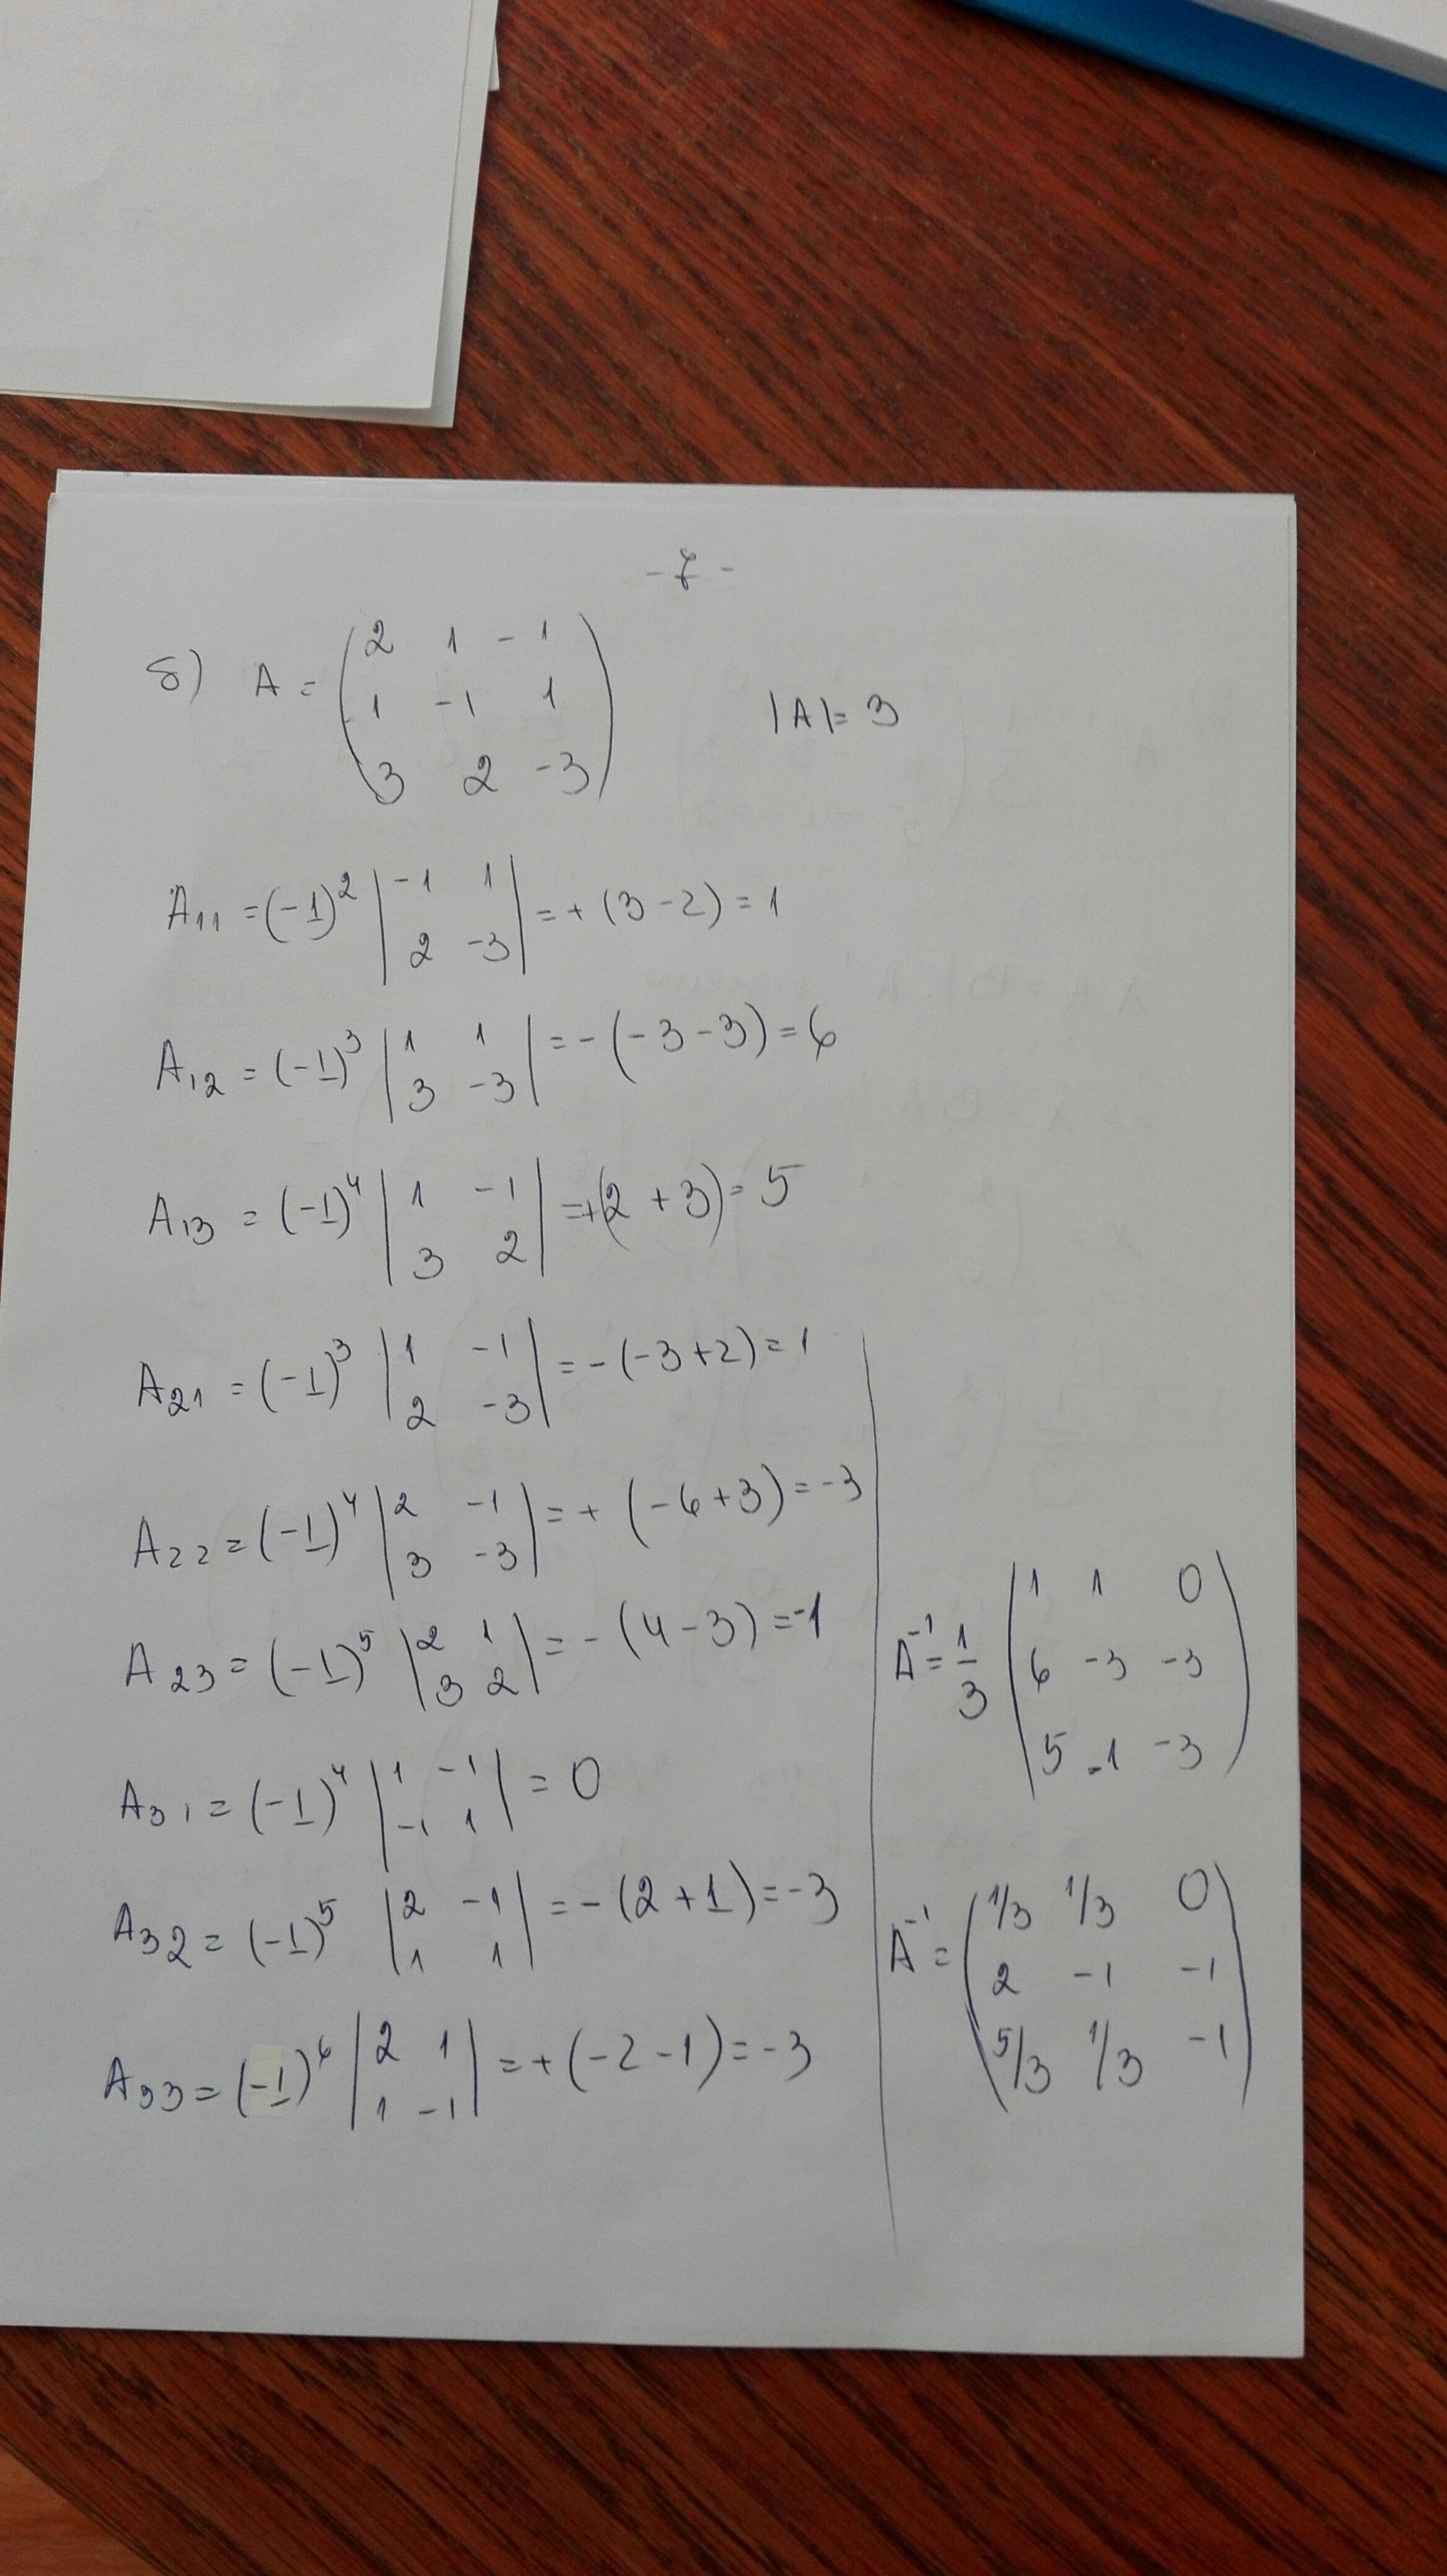 -7-
б) A = ( 2 1 -1
1 -1 1
3 2 -3 )
|A| = 3
A11 = (-1)^2 | -1 1 ; 2 -3 | = + (3 - 2) = 1
A12 = (-1)^3 | 1 1 ; 3 -3 | = - (-3 - 3) = 6
A13 = (-1)^4 | 1 -1 ; 3 2 | = + (2 + 3) = 5
A21 = (-1)^3 | 1 -1 ; 2 -3 | = - (-3 + 2) = 1
A22 = (-1)^4 | 2 -1 ; 3 -3 | = + (-6 + 3) = -3
A23 = (-1)^5 | 2 1 ; 3 2 | = - (4 - 3) = -1
A31 = (-1)^4 | 1 -1 ; -1 1 | = 0
A32 = (-1)^5 | 2 -1 ; 1 1 | = - (2 + 1) = -3
A33 = (-1)^6 | 2 1 ; 1 -1 | = + (-2 - 1) = -3
A^-1 = 1/3 ( 1 1 0
6 -3 -3
5 -1 -3 )
A^-1 = ( 1/3 1/3 0
2 -1 -1
5/3 1/3 -1 )